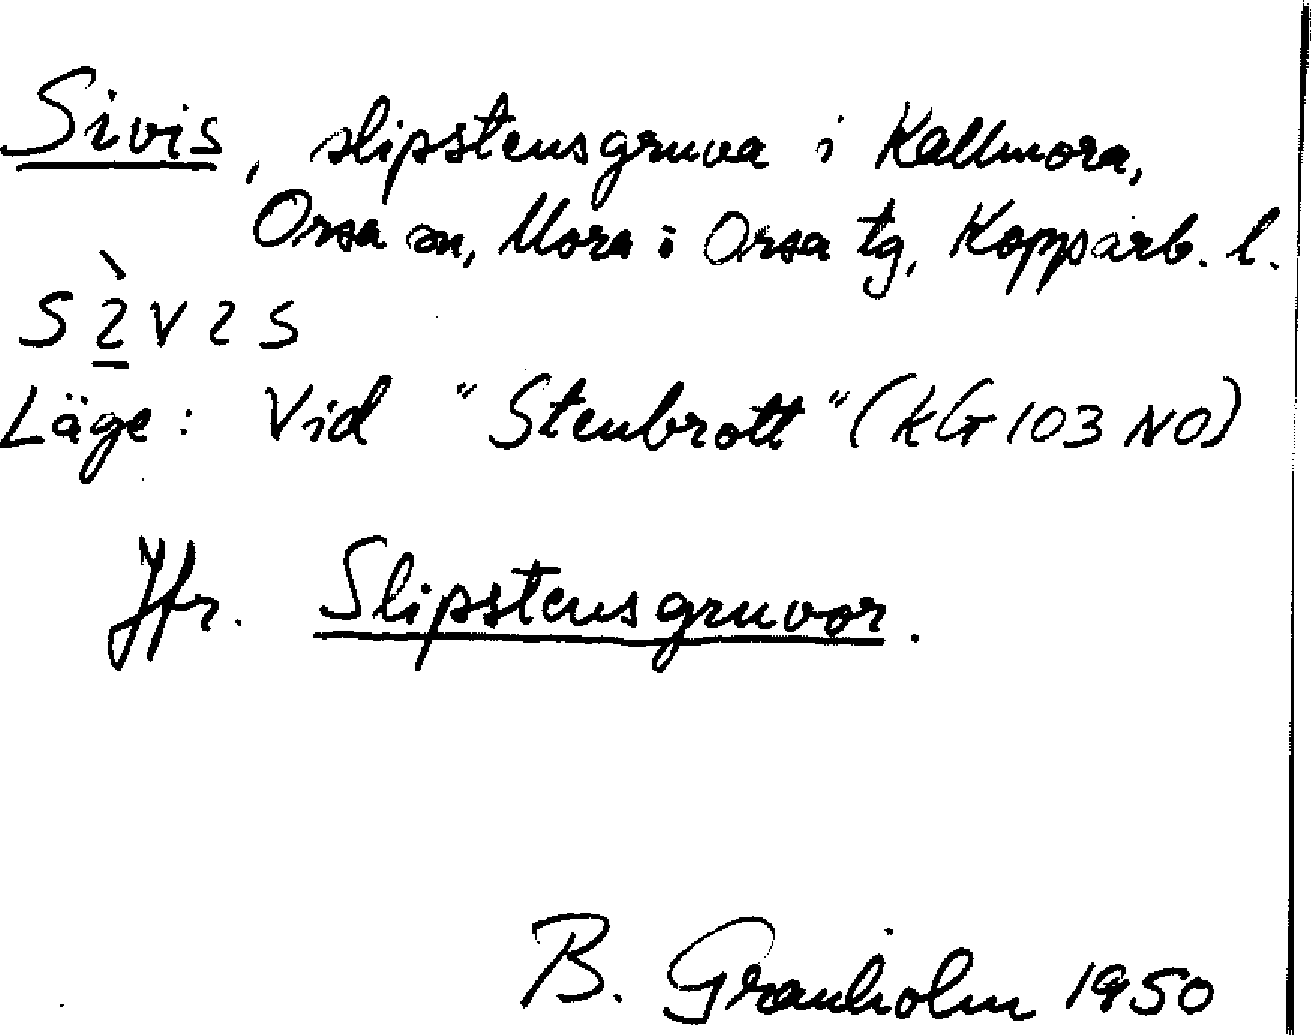 Sivis, slipstensgruva i Kallmora,
Orsa sn, Mora i Orsa tg, Kopparb. l.
s2̲̀v2s
Läge: Vid "Stenbrott" (KG 103 NO)
Jfr. Slipstensgruvor.
B. Granholm 1950